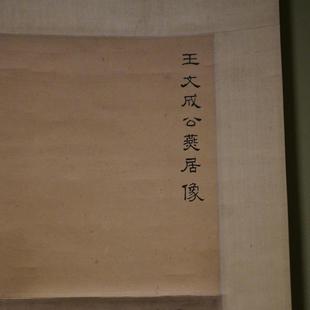 王文成公燕居像